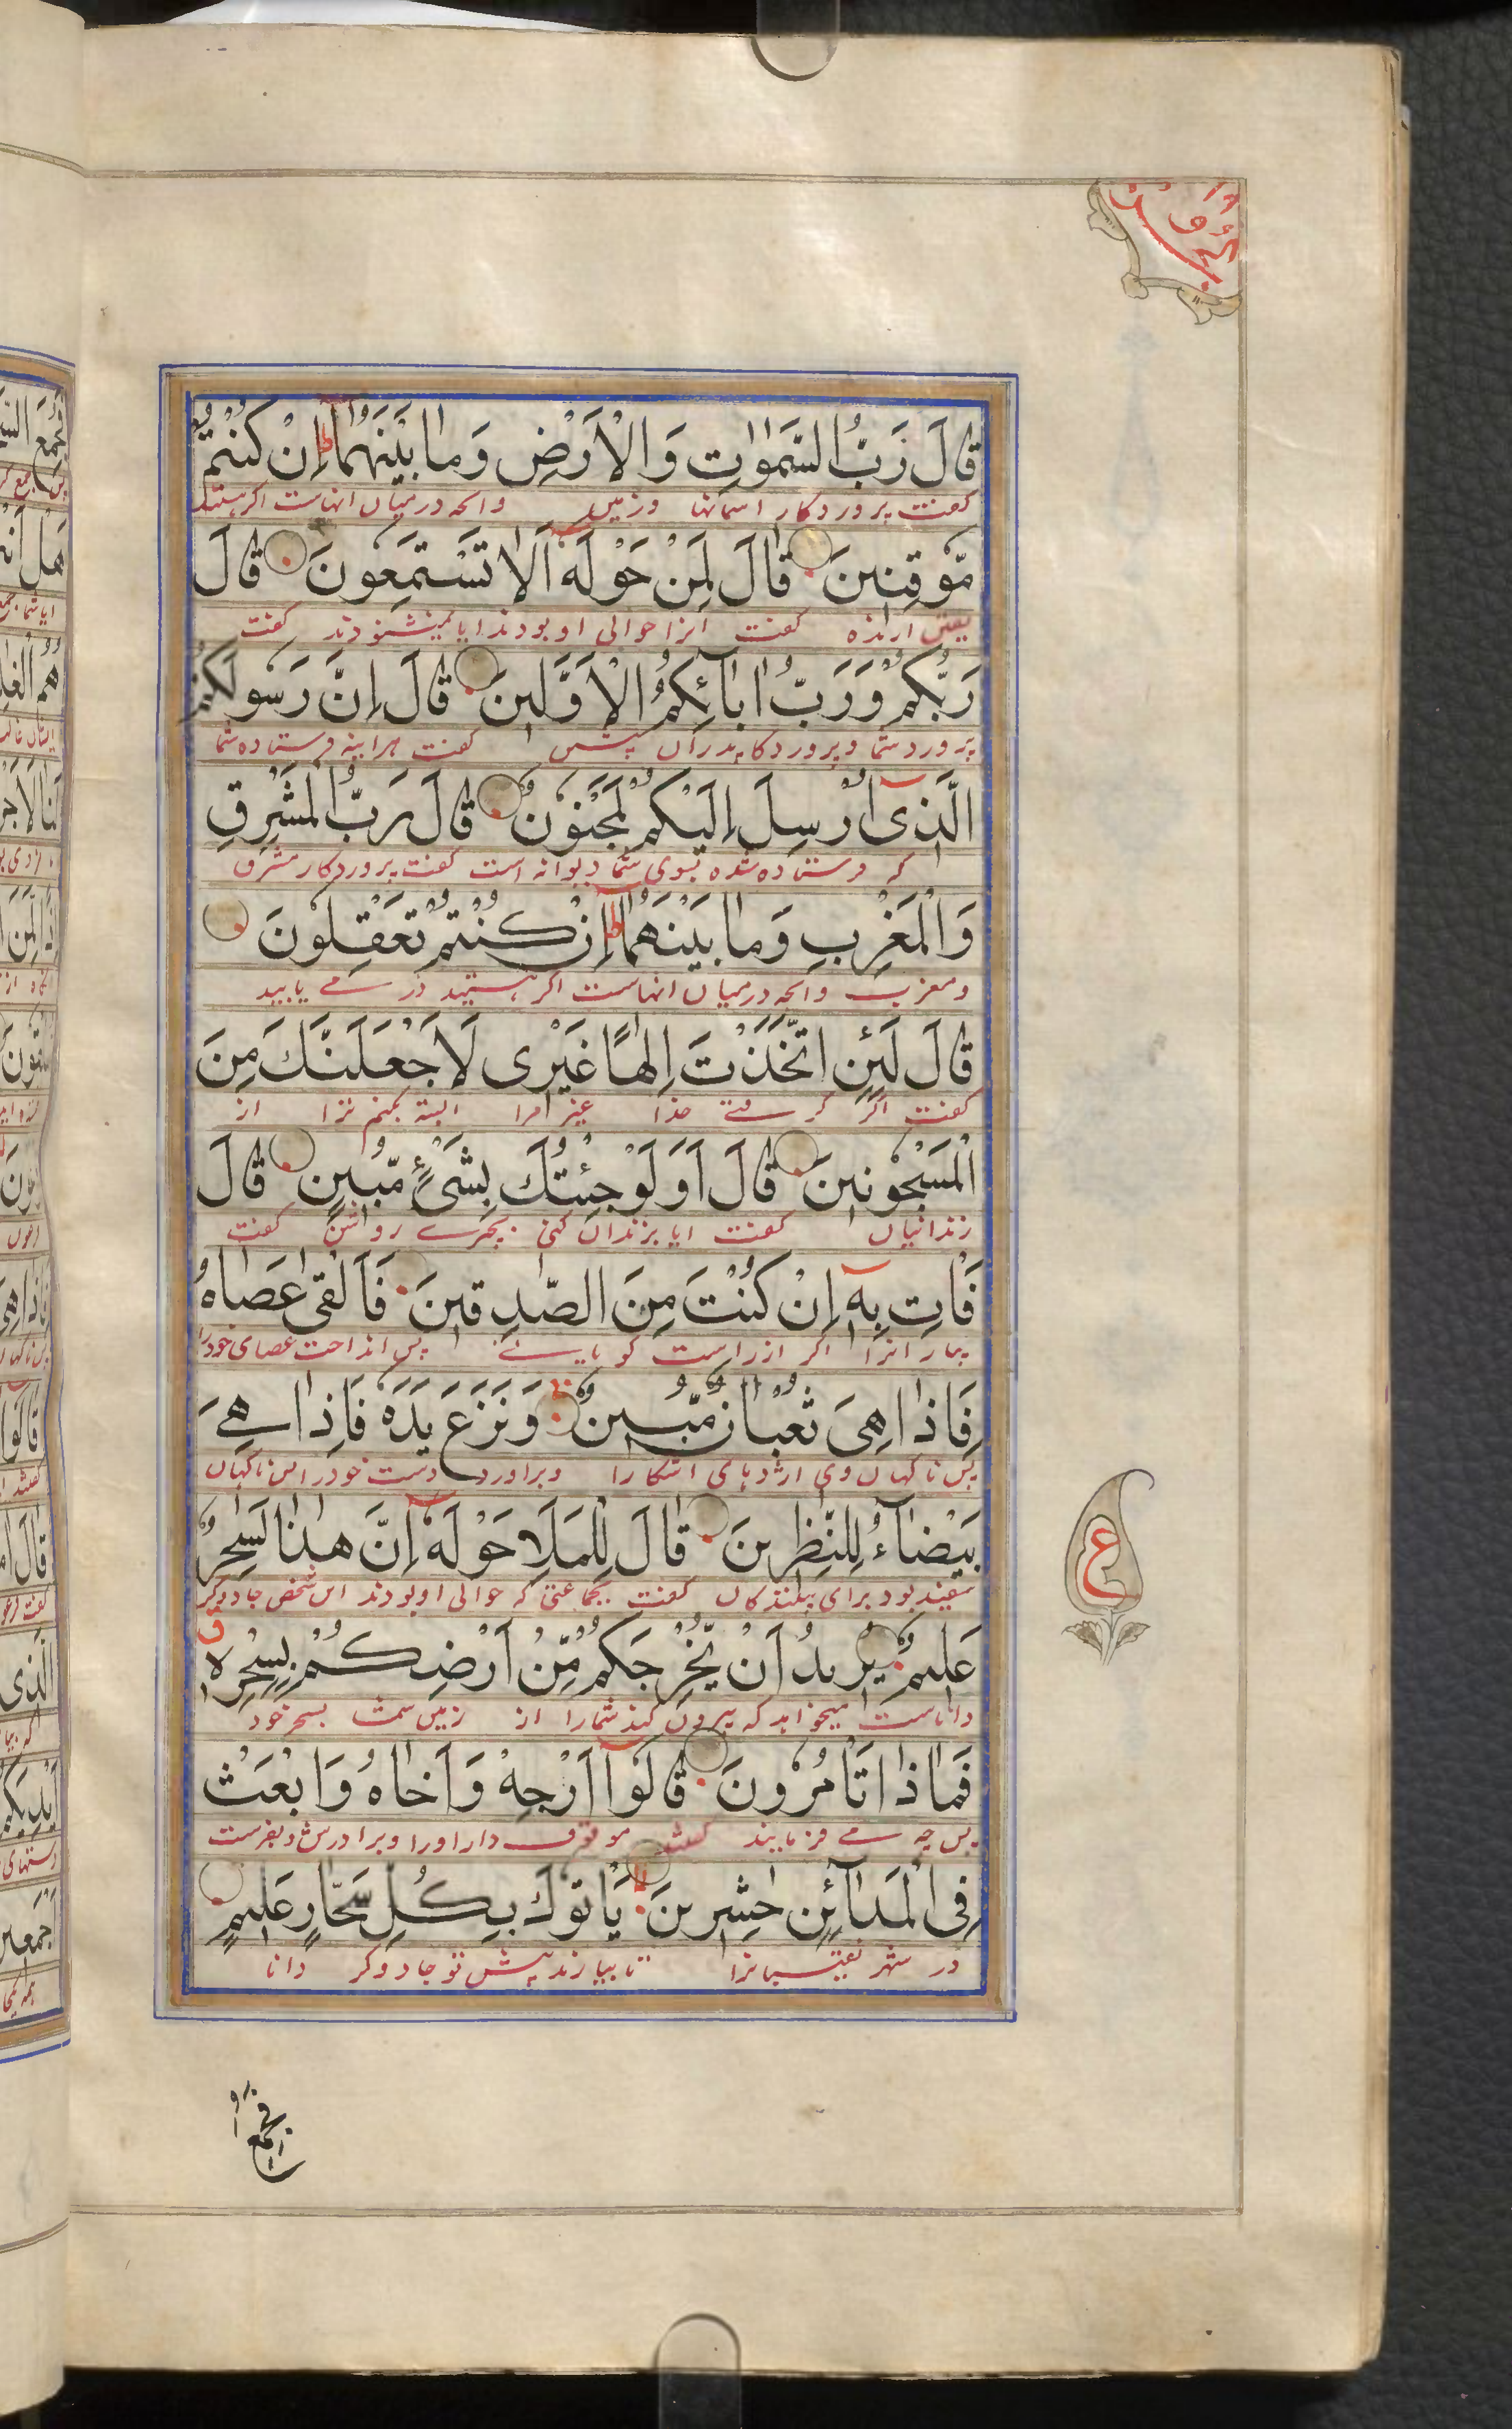 قَالَ رَبُّ السَّمٰوٰتِ وَالْاَرْضِ وَمَا بَيْنَهُمَا ط اِنْ كُنْتُمْ
گفت پروردگار اسمانها وزمین وانچه درمیان انهاست اگر هستید
مُّوْقِنِيْنَ قَالَ لِمَنْ حَوْلَهٗٓ اَلَا تَسْتَمِعُوْنَ قَالَ
یقین ارنده گفت انرا حوالی او بودند ایا نمیشنودند گفت
رَبُّكُمْ وَرَبُّ اٰبَآئِكُمُ الْاَوَّلِيْنَ قَالَ اِنَّ رَسُوْلَكُمُ
پرورد شما وپروردکار پدران پیشین گفت هراینه فرستاده شما
الَّذِيْٓ اُرْسِلَ اِلَيْكُمْ لَمَجْنُوْنٌ قَالَ رَبُّ الْمَشْرِقِ
که فرستاده شده بسوی شما دیوانه است گفت پروردکار مشرق
وَالْمَغْرِبِ وَمَا بَيْنَهُمَا ط اِنْ كُنْتُمْ تَعْقِلُوْنَ
ومغرب وانچه درمیان انهاست اکر هستید در می یابید
قَالَ لَئِنِ اتَّخَذْتَ اِلٰهًا غَيْرِيْ لَاَجْعَلَنَّكَ مِنَ
گفت اکر گرفتی خدا غیر مرا البته بکنم ترا از
الْمَسْجُوْنِيْنَ قَالَ اَوَلَوْ جِئْتُكَ بِشَيْءٍ مُّبِيْنٍ قَالَ
زندانیان گفت ایا بزندان کنی بچیزے روشن گفت
فَاْتِ بِهٖٓ اِنْ كُنْتَ مِنَ الصّٰدِقِيْنَ فَاَلْقٰى عَصَاهُ
بیار انرا اکر از راست کویانے پس انداخت عصای خود را
فَاِذَا هِيَ ثُعْبَانٌ مُّبِيْنٌ وَّنَزَعَ يَدَهٗ فَاِذَا هِيَ
پس ناکهان وی اژدهای اشکارا وبراورد دست خود را پس ناکهان
بَيْضَآءُ لِلنّٰظِرِيْنَ قَالَ لِلْمَلَاِ حَوْلَهٗٓ اِنَّ هٰذَا لَسٰحِرٌ
سفید بود برای بینندکان گفت بجماعتی که حوالی او بودند این شخص جادوکر
عَلِيْمٌ يُّرِيْدُ اَنْ يُّخْرِجَكُمْ مِّنْ اَرْضِكُمْ بِسِحْرِهٖ
داناست میخواهد که بیرون کند شمارا از زمین شما بسحر خود
فَمَاذَا تَاْمُرُوْنَ قَالُوْٓا اَرْجِهْ وَاَخَاهُ وَابْعَثْ
پس چه مے فرمایند گفتند موقوف دار اورا وبرادرش وبفرست
فِي الْمَدَآئِنِ حٰشِرِيْنَ يَاْتُوْكَ بِكُلِّ سَحَّارٍ عَلِيْمٍ
در شهر نقیبانرا تا بیارند پیش تو جادوکر دانا
ع
فجمع